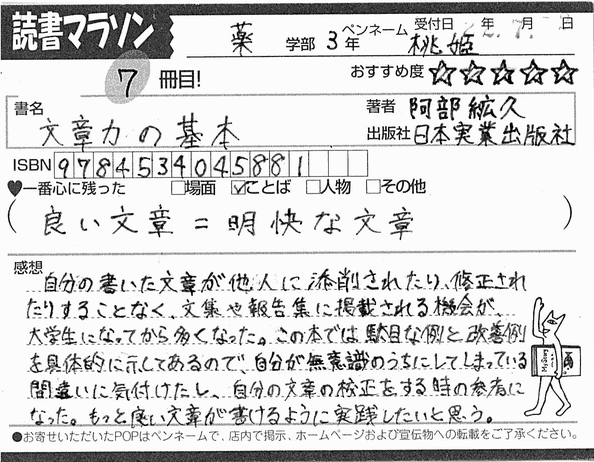 読書マラソン
薬 学部 3年 ペンネーム 桃姫 受付日 年 月 日
7 冊目! おすすめ度 ☆☆☆☆☆
書名 文章力の基本
著者 阿部紘久
出版社 日本実業出版社
ISBN 9784534045881
♥一番心に残った □場面 ☑ことば □人物 □その他
(良い文章=明快な文章)
感想
自分の書いた文章が他人に添削されたり、修正され
たりすることなく、文集や報告集に掲載される機会が、
大学生になってから多くなった。この本では駄目な例と改善例
を具体的に示してあるので、自分が無意識のうちにしてしまっている
間違いに気付けたし、自分の文章の校正をする時の参考に
なった。もっと良い文章が書けるように実践したいと思う。
●お寄せいただいたPOPはペンネームで、店内で掲示、ホームページおよび宣伝物への転載をご了承ください。